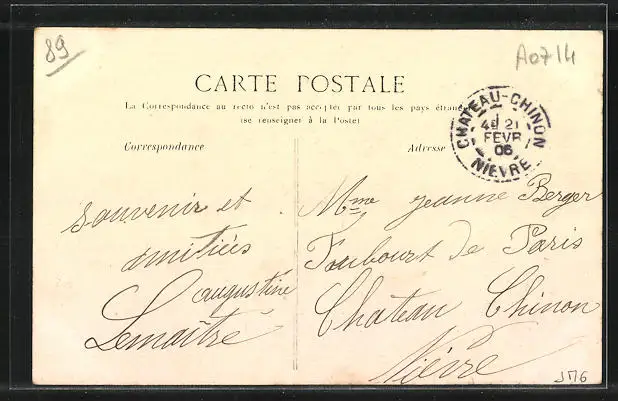 89
A0714
CARTE POSTALE
La Correspondance au recto n'est pas acceptée par tous les pays étrangers
(se renseigner à la Poste)
Correspondance
Adresse
CHATEAU-CHINON
4E 21
FEVR
06
NIEVRE
souvenir et
amitiés
augustine
Lemaître
Mme Jeanne Berger
Faubourt de Paris
Chateau Chinon
Nièvre
J176